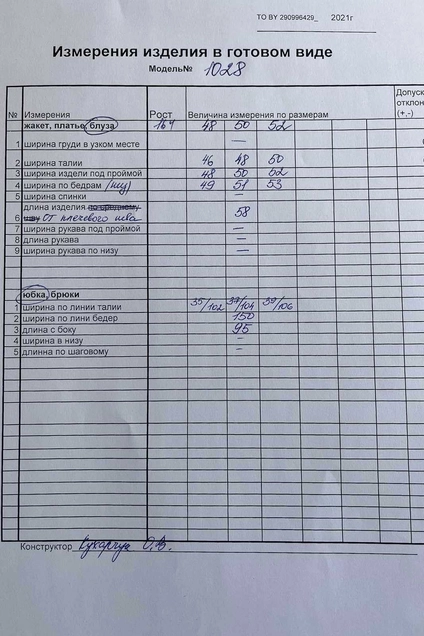 ТО BY 290996429_ 2021г
Измерения изделия в готовом виде
Модель№ 1028
№ Измерения Рост Величина измерения по размерам Допуск отклон (+,-)
жакет, платье, блуза 164 48 50 52
1 ширина груди в узком месте —
2 ширина талии 46 48 50
3 ширина издели под проймой 48 50 52
4 ширина по бедрам /низ/ 49 51 53
5 ширина спинки –
длина изделия по среднему
6 шву от плечевого шва 58
7 ширина рукава под проймой –
8 длина рукава –
9 ширина рукава по низу —
юбка, брюки
1 ширина по линии талии 35/102 37/104 39/106
2 ширина по лини бедер 150
3 длина с боку 95
4 ширина в низу –
5 длинна по шаговому –
Конструктор О.В.